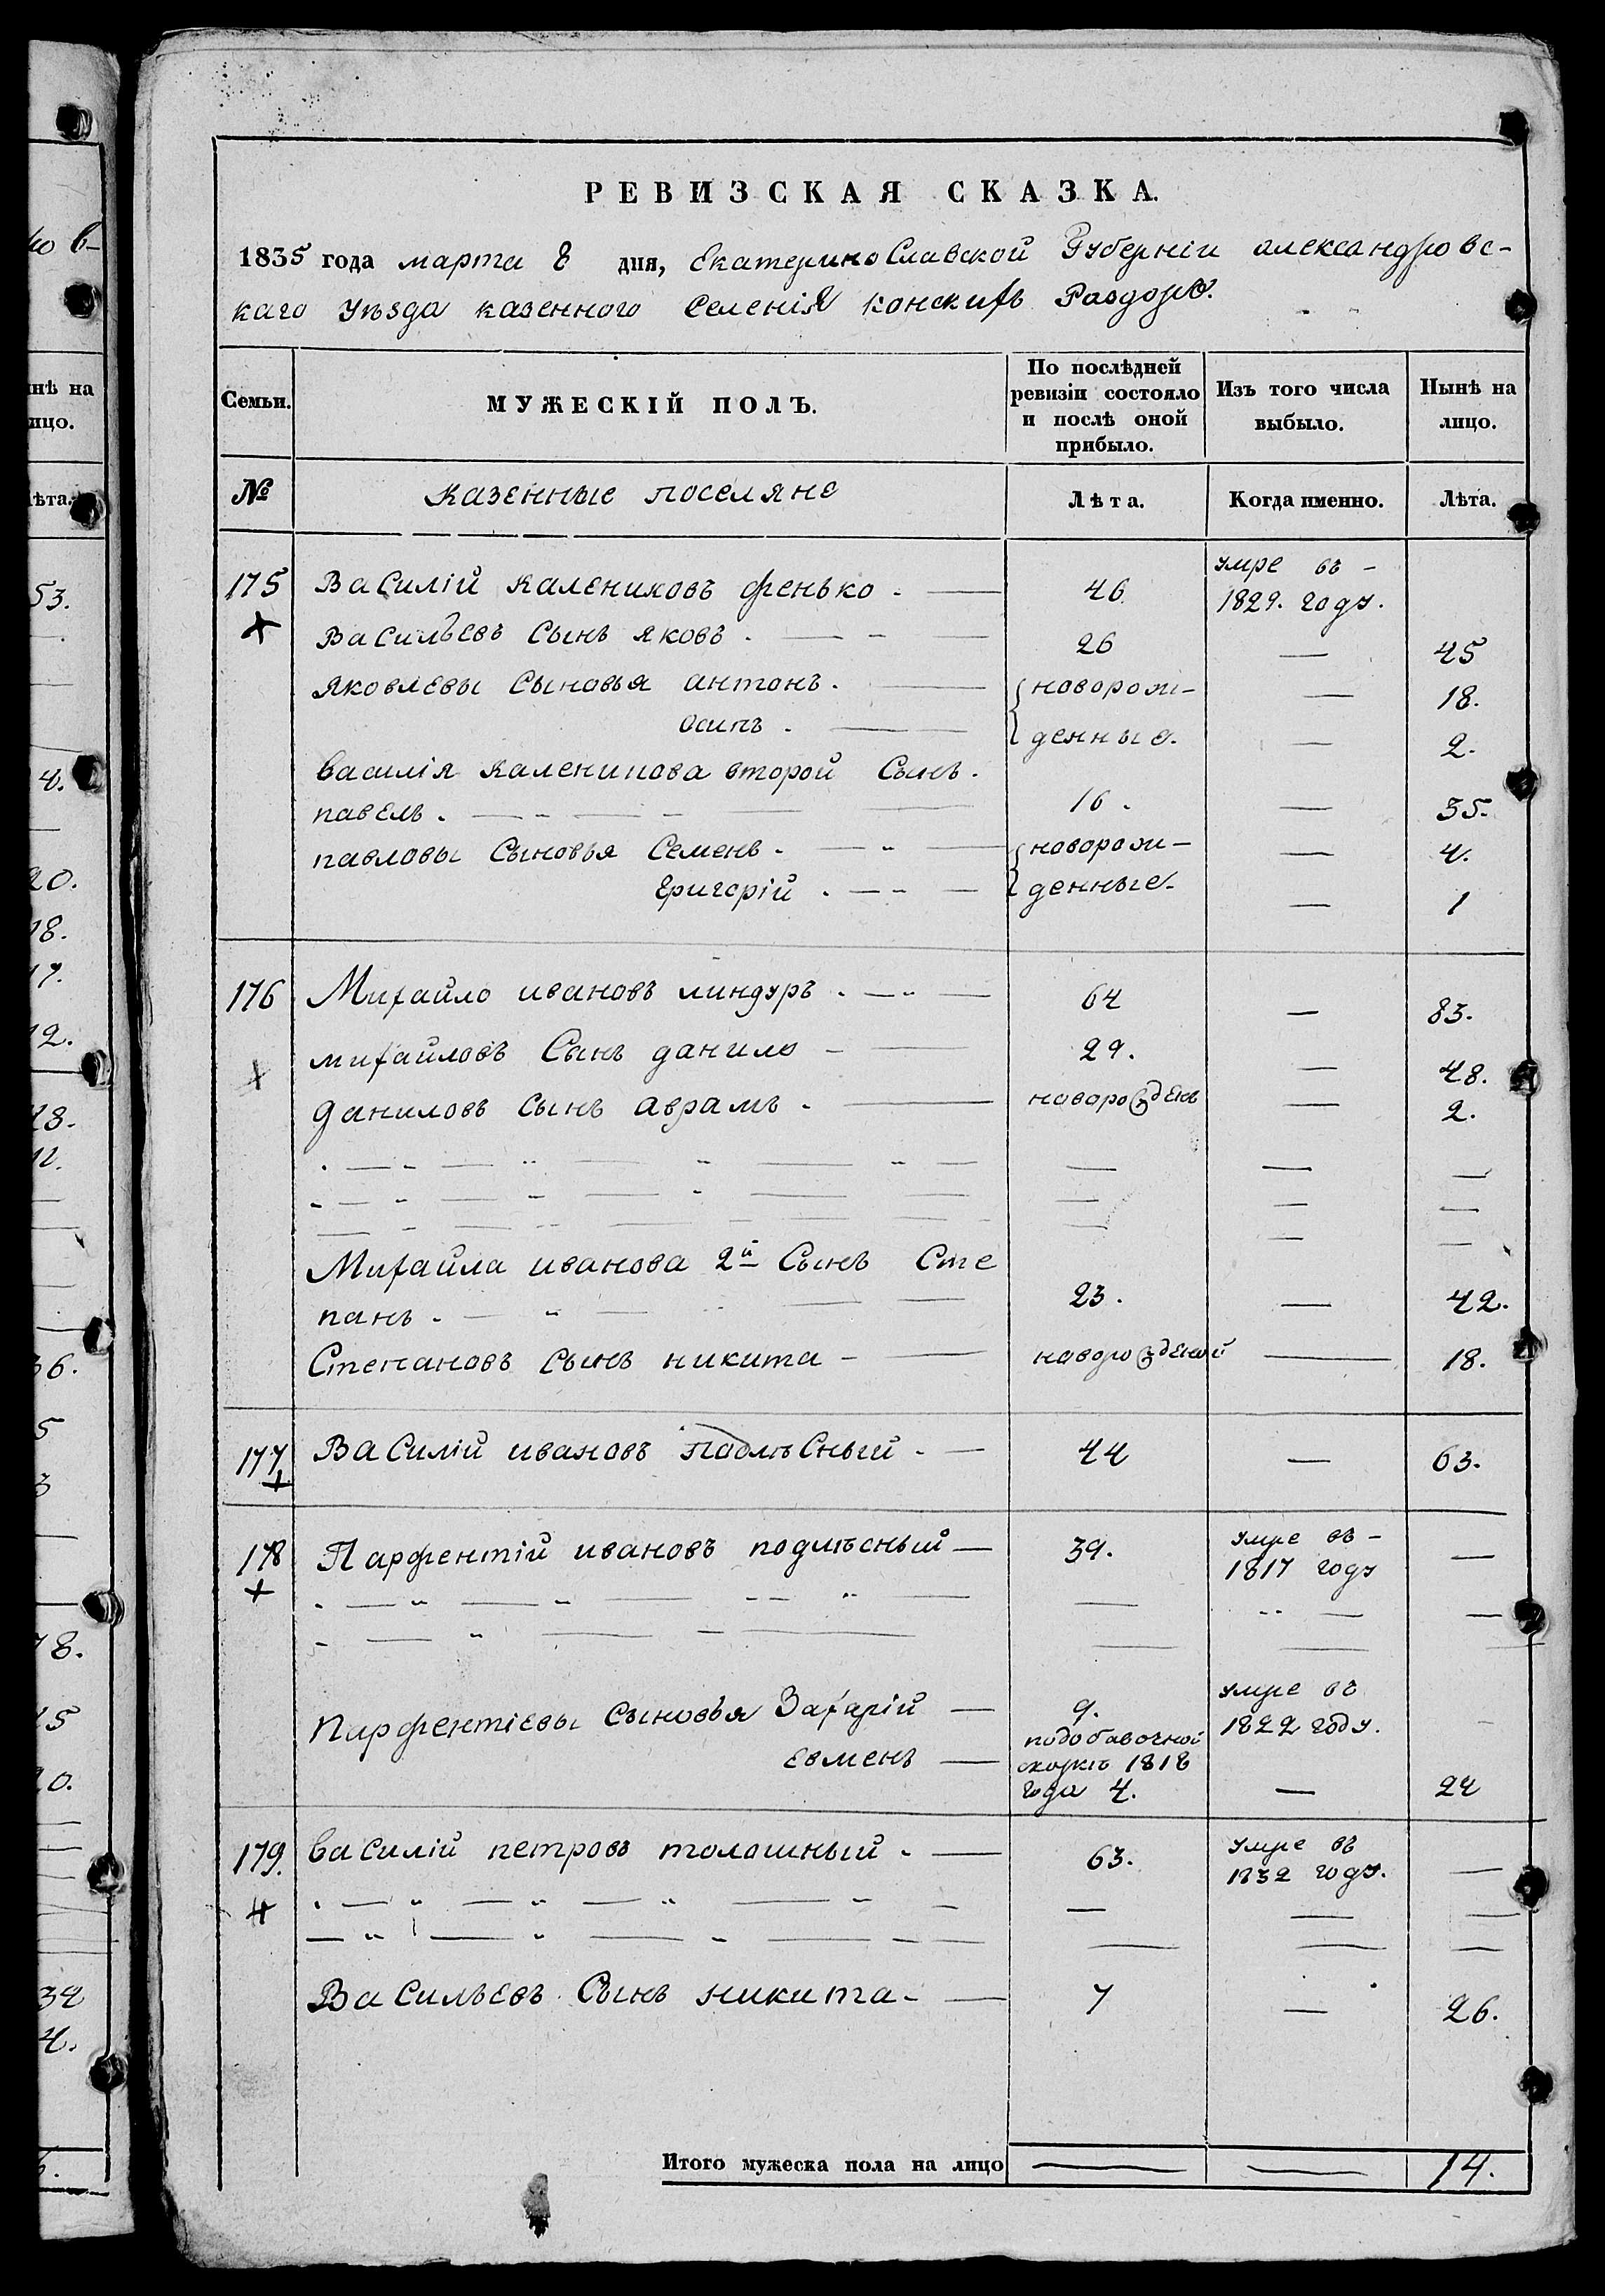 РЕВИЗСКАЯ СКАЗКА.
1835 года марта 8 дня, Екатеринославской Губерніи александровс-
каго уѣзда казенного селенія конскихъ Раздоръ.
Семьи. МУЖЕСКІЙ ПОЛЪ. По послѣдней ревизіи состояло и послѣ оной прибыло. Изъ того числа выбыло. Нынѣ на лицо.
№ казенные поселяне Лѣта. Когда именно. Лѣта.
175 Василій калениковъ фенько. 46 умре въ - 1829. году.
Васильевъ Сынъ яковъ. 26 — 45
яковлевы Сыновья антонъ. новорож- — 18.
осипъ. денные. — 2.
василія каленикова второй Сынъ.
павелъ. 16. — 35.
павловы Сыновья Семенъ. новорож- — 4.
Григорій. денные. — 1
176 Михайло ивановъ линдуръ. 64 — 83.
михайловъ Сынъ данило - 29. — 48.
даниловъ сынъ аврамъ. новорозденъ — 2.
Михайла иванова 2й Сынъ Сте
панъ. 23. — 42.
Степановъ сынъ никита - новорозденой — 18.
177 Василій ивановъ подлѣсный. 44 — 63.
178 Парфентій ивановъ подлѣсный — 39. умре въ - 1817 году —
Парфентіевы сыновья Захарій — 9. умре въ 1822 году.
евменъ — подобавочной скаркѣ 1818 года 4. — 24
179. василій петровъ толошный. 63. умре въ 1832 году. —
Васильевъ Сынъ никита - 7 — 26.
Итого мужеска пола на лицо — — 14.
ко в-
нѣ на
ицо.
ѣта.
53.
4.
20.
18.
17.
12.
28.
12.
36.
5
3
78.
15
20.
34
4.